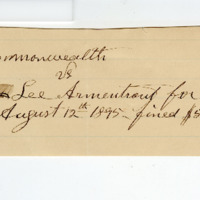 ommonwealth
vs
Lee Armentrout for
August 12th 1895 fined $5